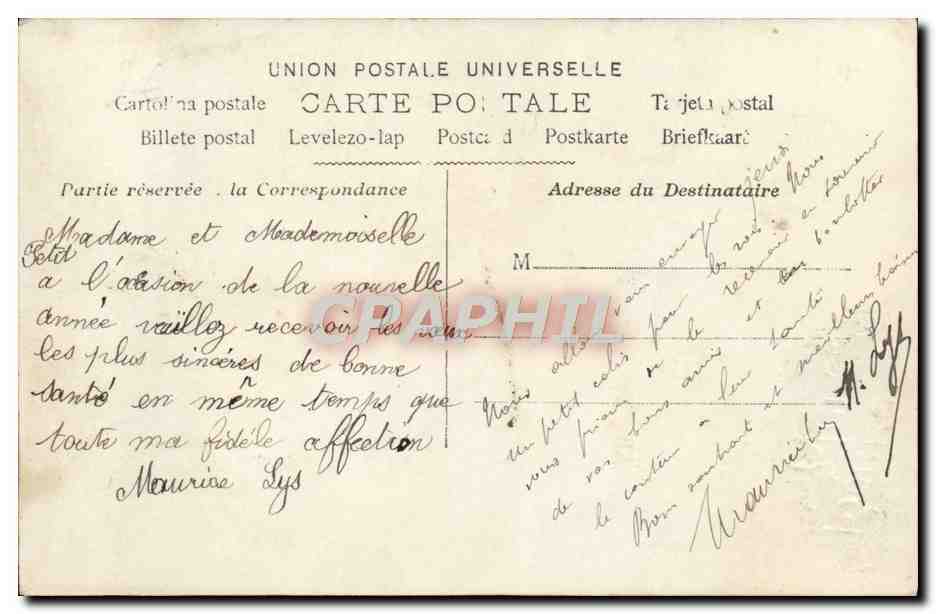 UNION POSTALE UNIVERSELLE
Cartolina postale CARTE POSTALE Tarjeta postal
Billete postal Levelezo-lap Postcard Postkarte Briefkaart
Partie réservée à la Correspondance
Adresse du Destinataire
M
Madame et Mademoiselle
Petit
a l'ocasion de la nouvelle
année vuillez recevoir les vœux
les plus sincéres de bonne
santé en même temps que
toute ma fidéle affection
Maurice Lys
Nous allons vous envoyer jeudi
un petit colis par les Nous
vous prions de le recevoir en souvenir
de vos bons amis et
le contenu à santé
Bon et meilleurs
M. Lys
CPAPHIL